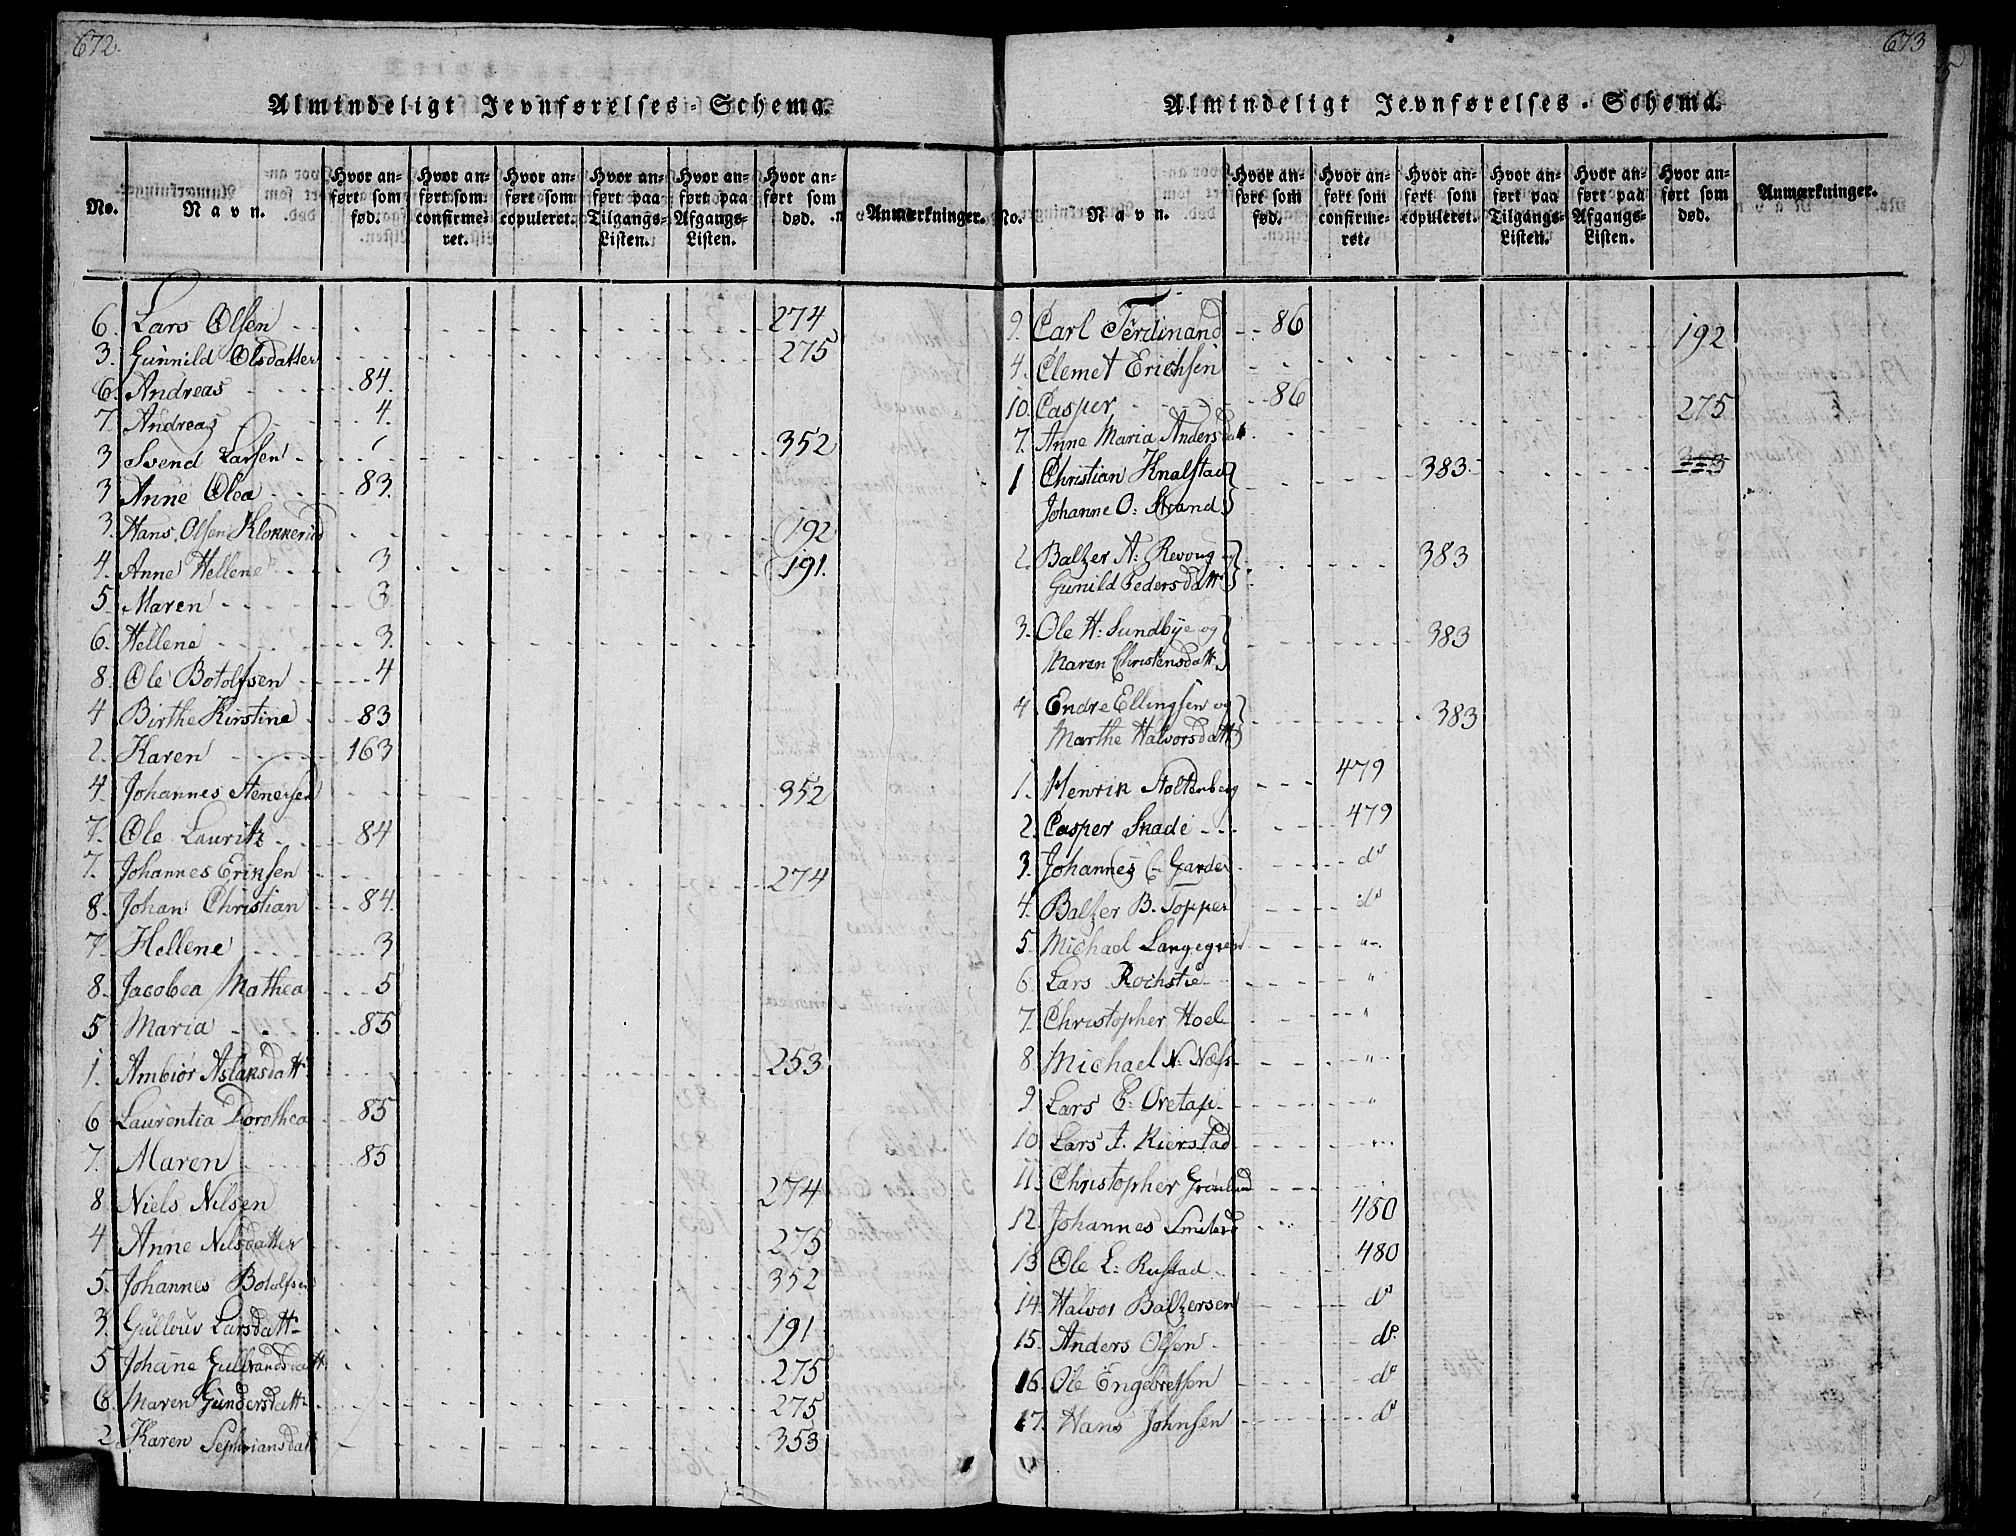 672.
Almindeligt Jevnførelses-Schema.
No. Navn. Hvor anført som fød. Hvor anført som confirmeret. Hvor anført som copuleret. Hvor anført paa Tilgangs-Listen. Hvor anført paa Afgangs-Listen. Hvor anført som død. Anmærkninger.
6. Lars Olsen 274
3. Gunnild Olsdatter 275
6. Andreas 84.
7. Andreas 4.
3 Svend Larsen 352
3 Anne Olea 83.
3. Hans Olsen Klokkerud 192
4. Anne Hellene 3
5. Maren 3
6. Hellene 3.
8. Ole Botolfsen 4
4 Birthe Kirstine 83
2. Karen 163
4. Johannes Stenersen 352
7. Ole Lauritz 84
7. Johannes Eriksen 274
8. Johan Christian 84.
7. Hellene 3
8. Jacobea Mathea 5
5 Maria 85
1. Ambiør Aslaksdatt 253
6 Laurentia Dorothea 85
7. Maren 85
8 Niels Nilsen 274
4 Anne Nilsdatter 275
5. Johannes Botolfsen 352
3. Gullouv Larsdatt 191
5 Johane Gulbrandsdatt 275
6. Maren Gundersdatt 275
2. Karen Sephriansdatt 353
673
Almindeligt Jevnførelses-Schema.
No. Navn. Hvor anført som fød. Hvor anført som confirmeret. Hvor anført som copuleret. Hvor anført paa Tilgangs-Listen. Hvor anført paa Afgangs-Listen. Hvor anført som død. Anmærkninger.
9. Carl Ferdinand 86
4. Clemet Erichsen 192
10. Casper 86
7. Anne Maria Andersdatt 275
1 Christian Knalstad 383
Johanne O: Strand
2. Baltzer A: Revoug og 383
Gunild Pedersdatt
3. Ole H: Sundbye og 383
Maren Christensdatt
4 Endre Ellingsen og 383
Marthe Halvorsdatt
1. Henrik Stoltenberg 479
2. Casper Skade 479
3. Johannes C. Garder do
4. Baltzer B. Topper do
5. Michael Langegren "
6. Lars Rochstie "
7. Christopher Hoel "
8. Michael N: Næss "
9 Lars C: Ovetap "
10. Lars A. Kierstad "
11. Christopher Grønlund
12. Johannes 480
13. Ole L: Rustad 480
14. Halvor Baltzersen do
15. Anders Olsen do.
16. Ole Engebretsen do
17. Hans Johnsen do